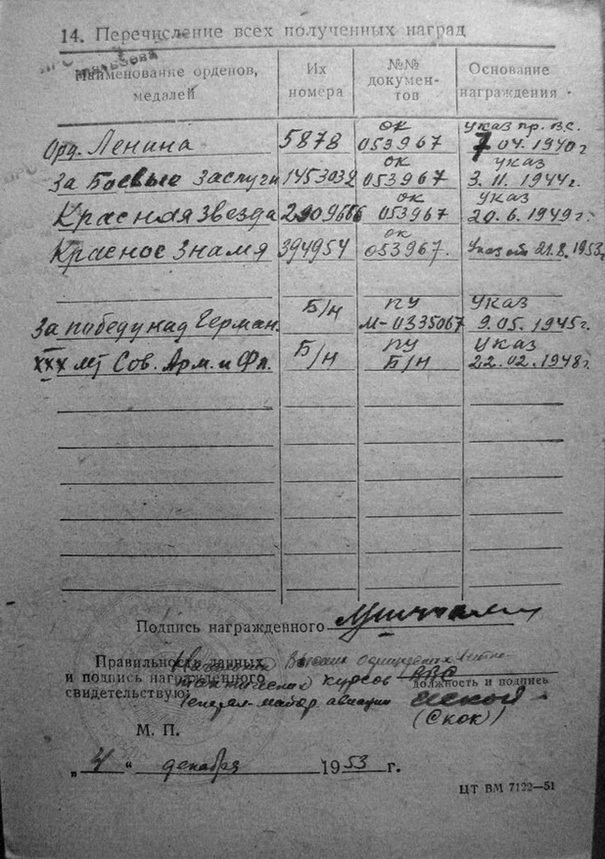 14. Перечисление всех полученных наград
Наименование орденов, медалей
Их номера
№№ документов
Основание награждения
Орд. Ленина 5878 ОК 053967 Указ пр. В.С. 7 04. 1940 г.
За Боевые заслуги 1453032 ОК 053967 указ 3. 11. 1944 г.
Красная Звезда ОК 053967 указ 20. 6. 1949 г.
Красное Знамя 394954 ОК 053967. Указ от 21.8.1953 г.
За победу над Герман. Б/н ПУ М-0335067 Указ 9. 05. 1945 г.
XXX лет Сов. Арм. и Фл. Б/н ПУ Б/н Указ 22. 02. 1948 г.
Подпись награжденного
Правильность данных
и подпись награжденного
свидетельствую:
курсов ВВС
должность и подпись
Генерал-майор авиации Скок
(Скок)
М. П.
„4“ декабря 1953 г.
ЦТ ВМ 7122—51